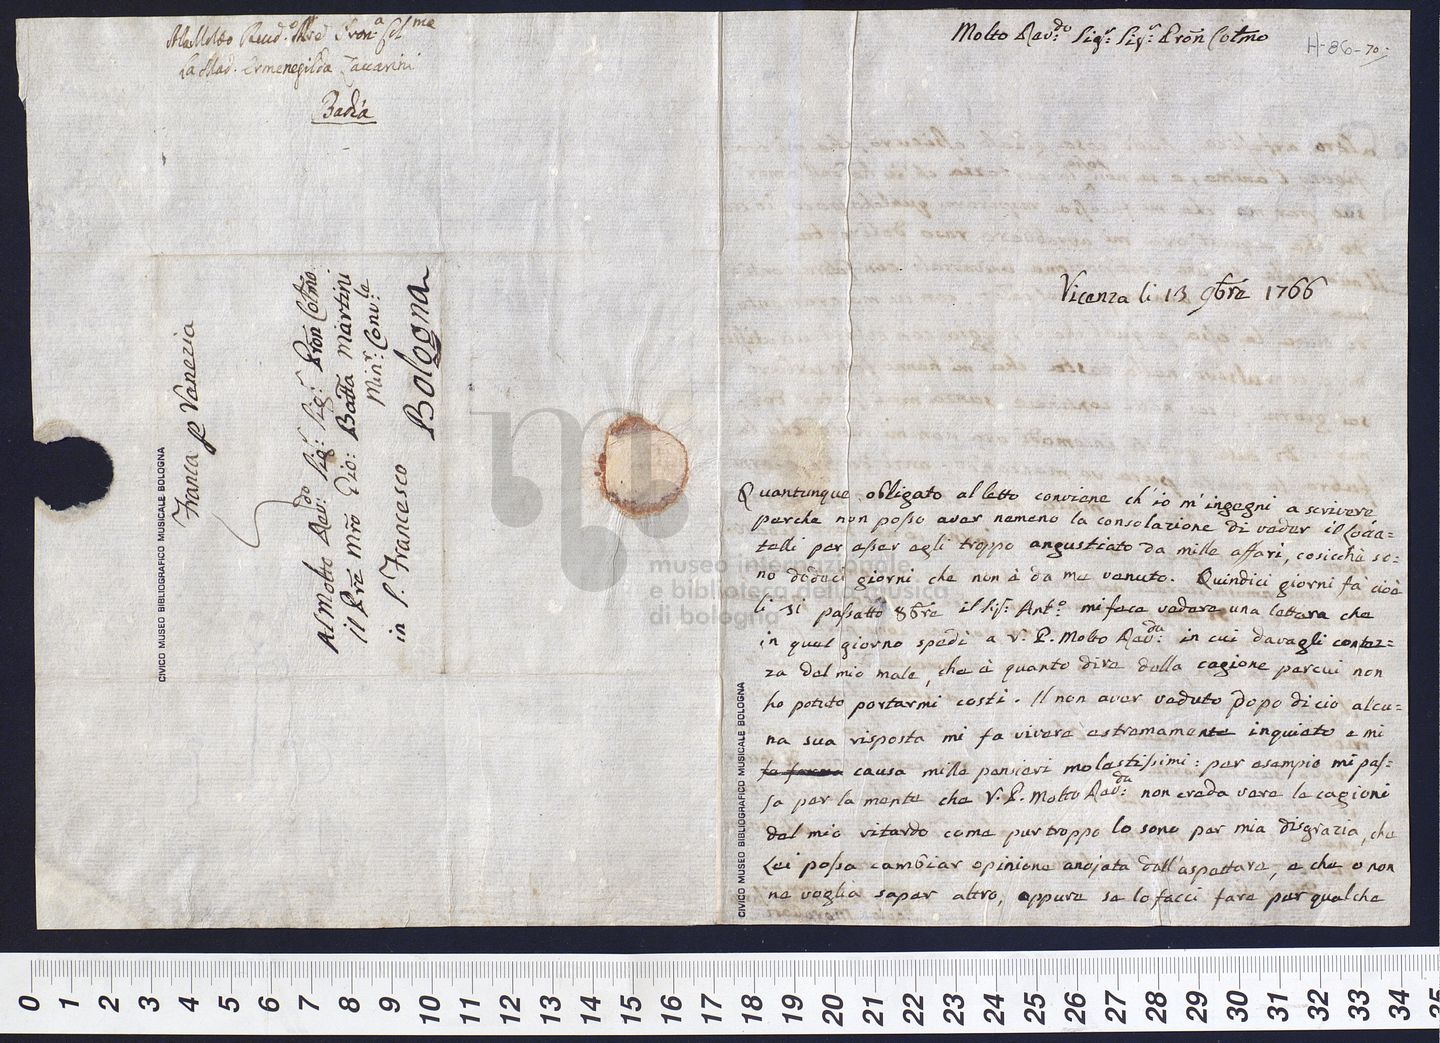 Alla Molto Revd.ᵒ Mre Pron.ᵃ Col.ᵐᵃ
La Mad. Ermenegilda Zaccarini
Badia
Franca p Vanezia
Al Molto Rav:ᵈᵒ Sig:ʳ Sig:ʳ Pron Colmo
il Pre Mro Gio: Batta Martini
Min:ʳ Conv:ˡᵉ
in S. Francesco Bologna
CIVICO MUSEO BIBLIOGRAFICO MUSICALE BOLOGNA
Molto Rav:ᵈᵒ Sig:ʳ Sig:ʳ Pron Colmo
H-86-70
Vicenza li 13 9bre 1766
Quantunque obligato al letto conviene ch'io m'ingegni a scrivere
perche non posso aver nemeno la consolazione di veder il Loca=
telli per esser egli troppo angustiato da mille affari, cosicchè so=
no dodeci giorni che non è da me venuto. Quindici giorni fà cioè
li 31 passatto 8bre il Sig: Ant.º mi fece vedere una lettera che
in quel giorno spedì a V. P. Molto Rev:ᵈᵃ in cui davagli contez=
za del mio male, che è quanto dire della cagione percui non
ho potuto portarmi costì. Il non aver veduto dopo di ciò alcu=
na sua risposta mi fa vivere estremamente inquieto e mi
causa mille pensieri molestissimi: per esempio mi pas=
sa per la mente che V. P. Molto Rev:ᵈᵃ non creda vere le cagioni
del mio ritardo come pur troppo lo sono per mia disgrazia, che
Lei possa cambiar opinione anojata dall'aspettare, e che o non
ne voglia saper altro, oppure se lo facci fare per qualche
CIVICO MUSEO BIBLIOGRAFICO MUSICALE BOLOGNA
museo internazionale
e biblioteca della musica
di bologna
0 1 2 3 4 5 6 7 8 9 10 11 12 13 14 15 16 17 18 19 20 21 22 23 24 25 26 27 28 29 30 31 32 33 34 35